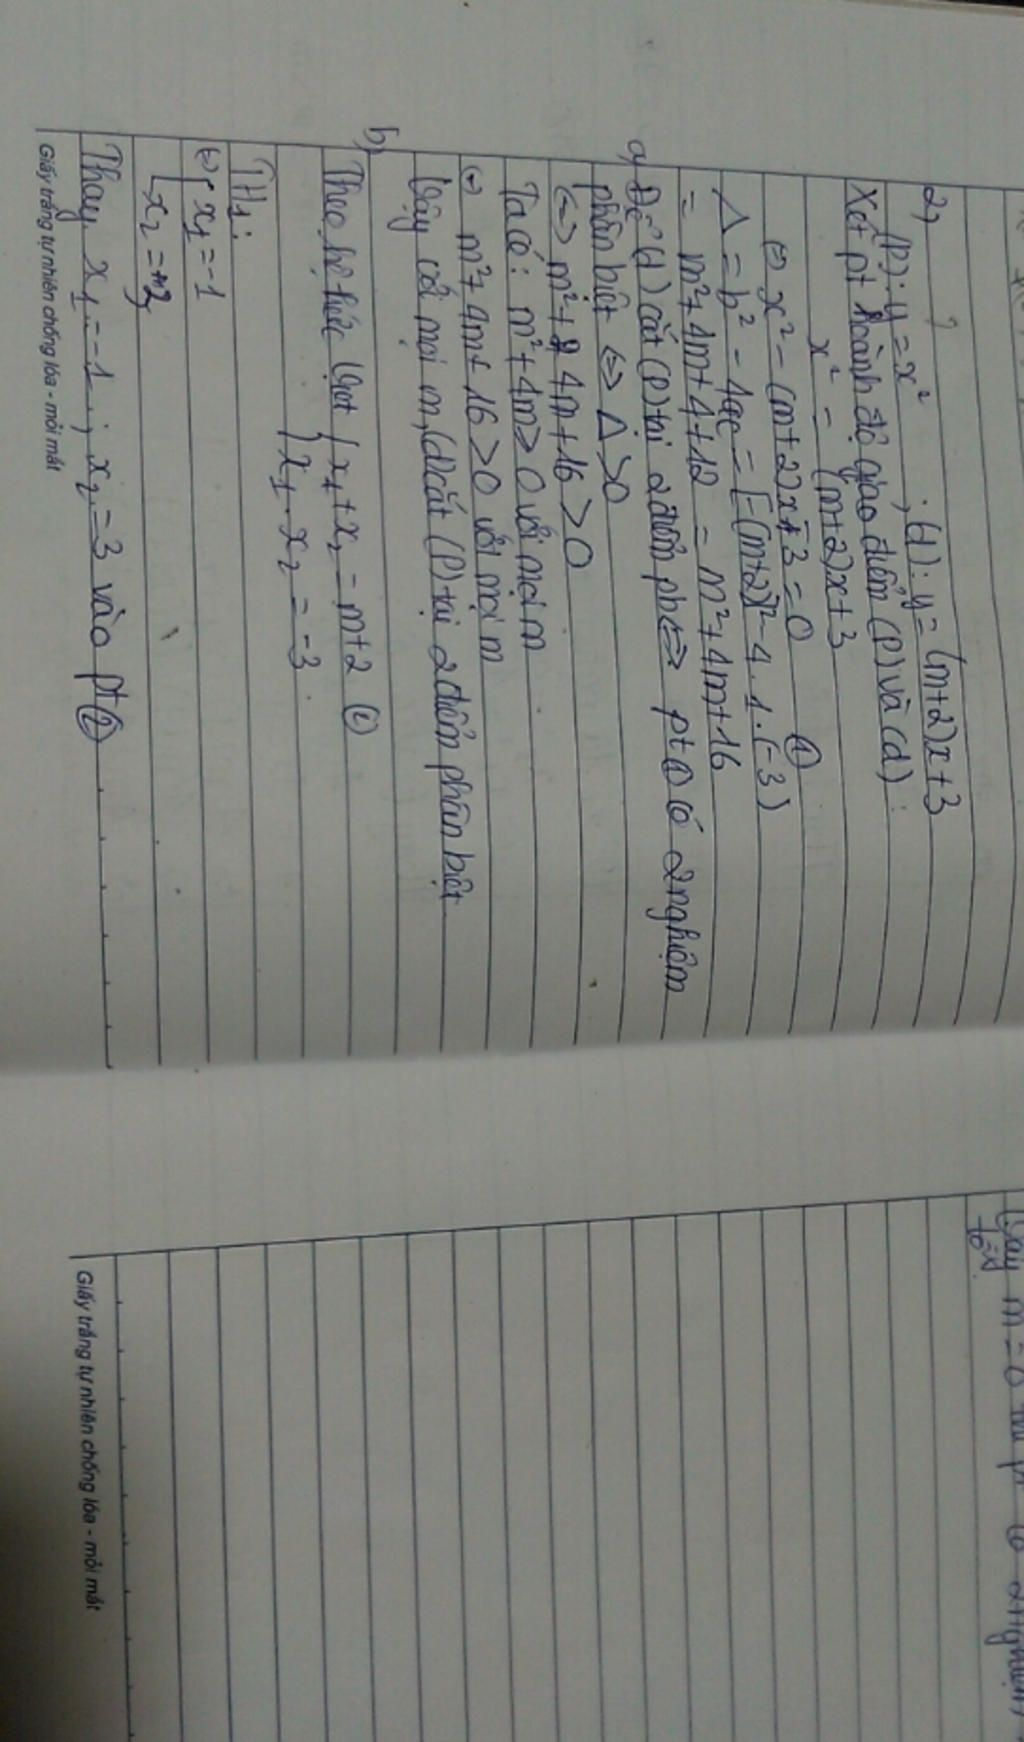 2)
(P): y = x² ; (d): y = (m+2)x+3
Xét pt hoành độ giao điểm (P) và (d):
x² = (m+2)x+3
⇔ x² - (m+2)x - 3 = 0 ①
Δ = b² - 4ac = [-(m+2)]² - 4.1.(-3)
= m²+4m+4+12 = m²+4m+16
a) Để (d) cắt (P) tại 2 điểm pb ⇔ pt ① có 2 nghiệm
phân biệt ⇔ Δ > 0
⇔ m² + 4m + 16 > 0
Ta có: m² + 4m ≥ 0 với mọi m
⇔ m² + 4m + 16 > 0 với mọi m
Vậy với mọi m, (d) cắt (P) tại 2 điểm phân biệt
b)
Theo hệ thức Viet { x₁ + x₂ = m+2 ②
x₁ . x₂ = -3
TH1:
⇔ { x₁ = -1
x₂ = 3
Thay x₁ = -1 ; x₂ = 3 vào pt ②
Giấy trắng tự nhiên chống lóa - mỏi mắt
Vậy m = 0 thì pt có 2 nghiệm
Giấy trắng tự nhiên chống lóa - mỏi mắt